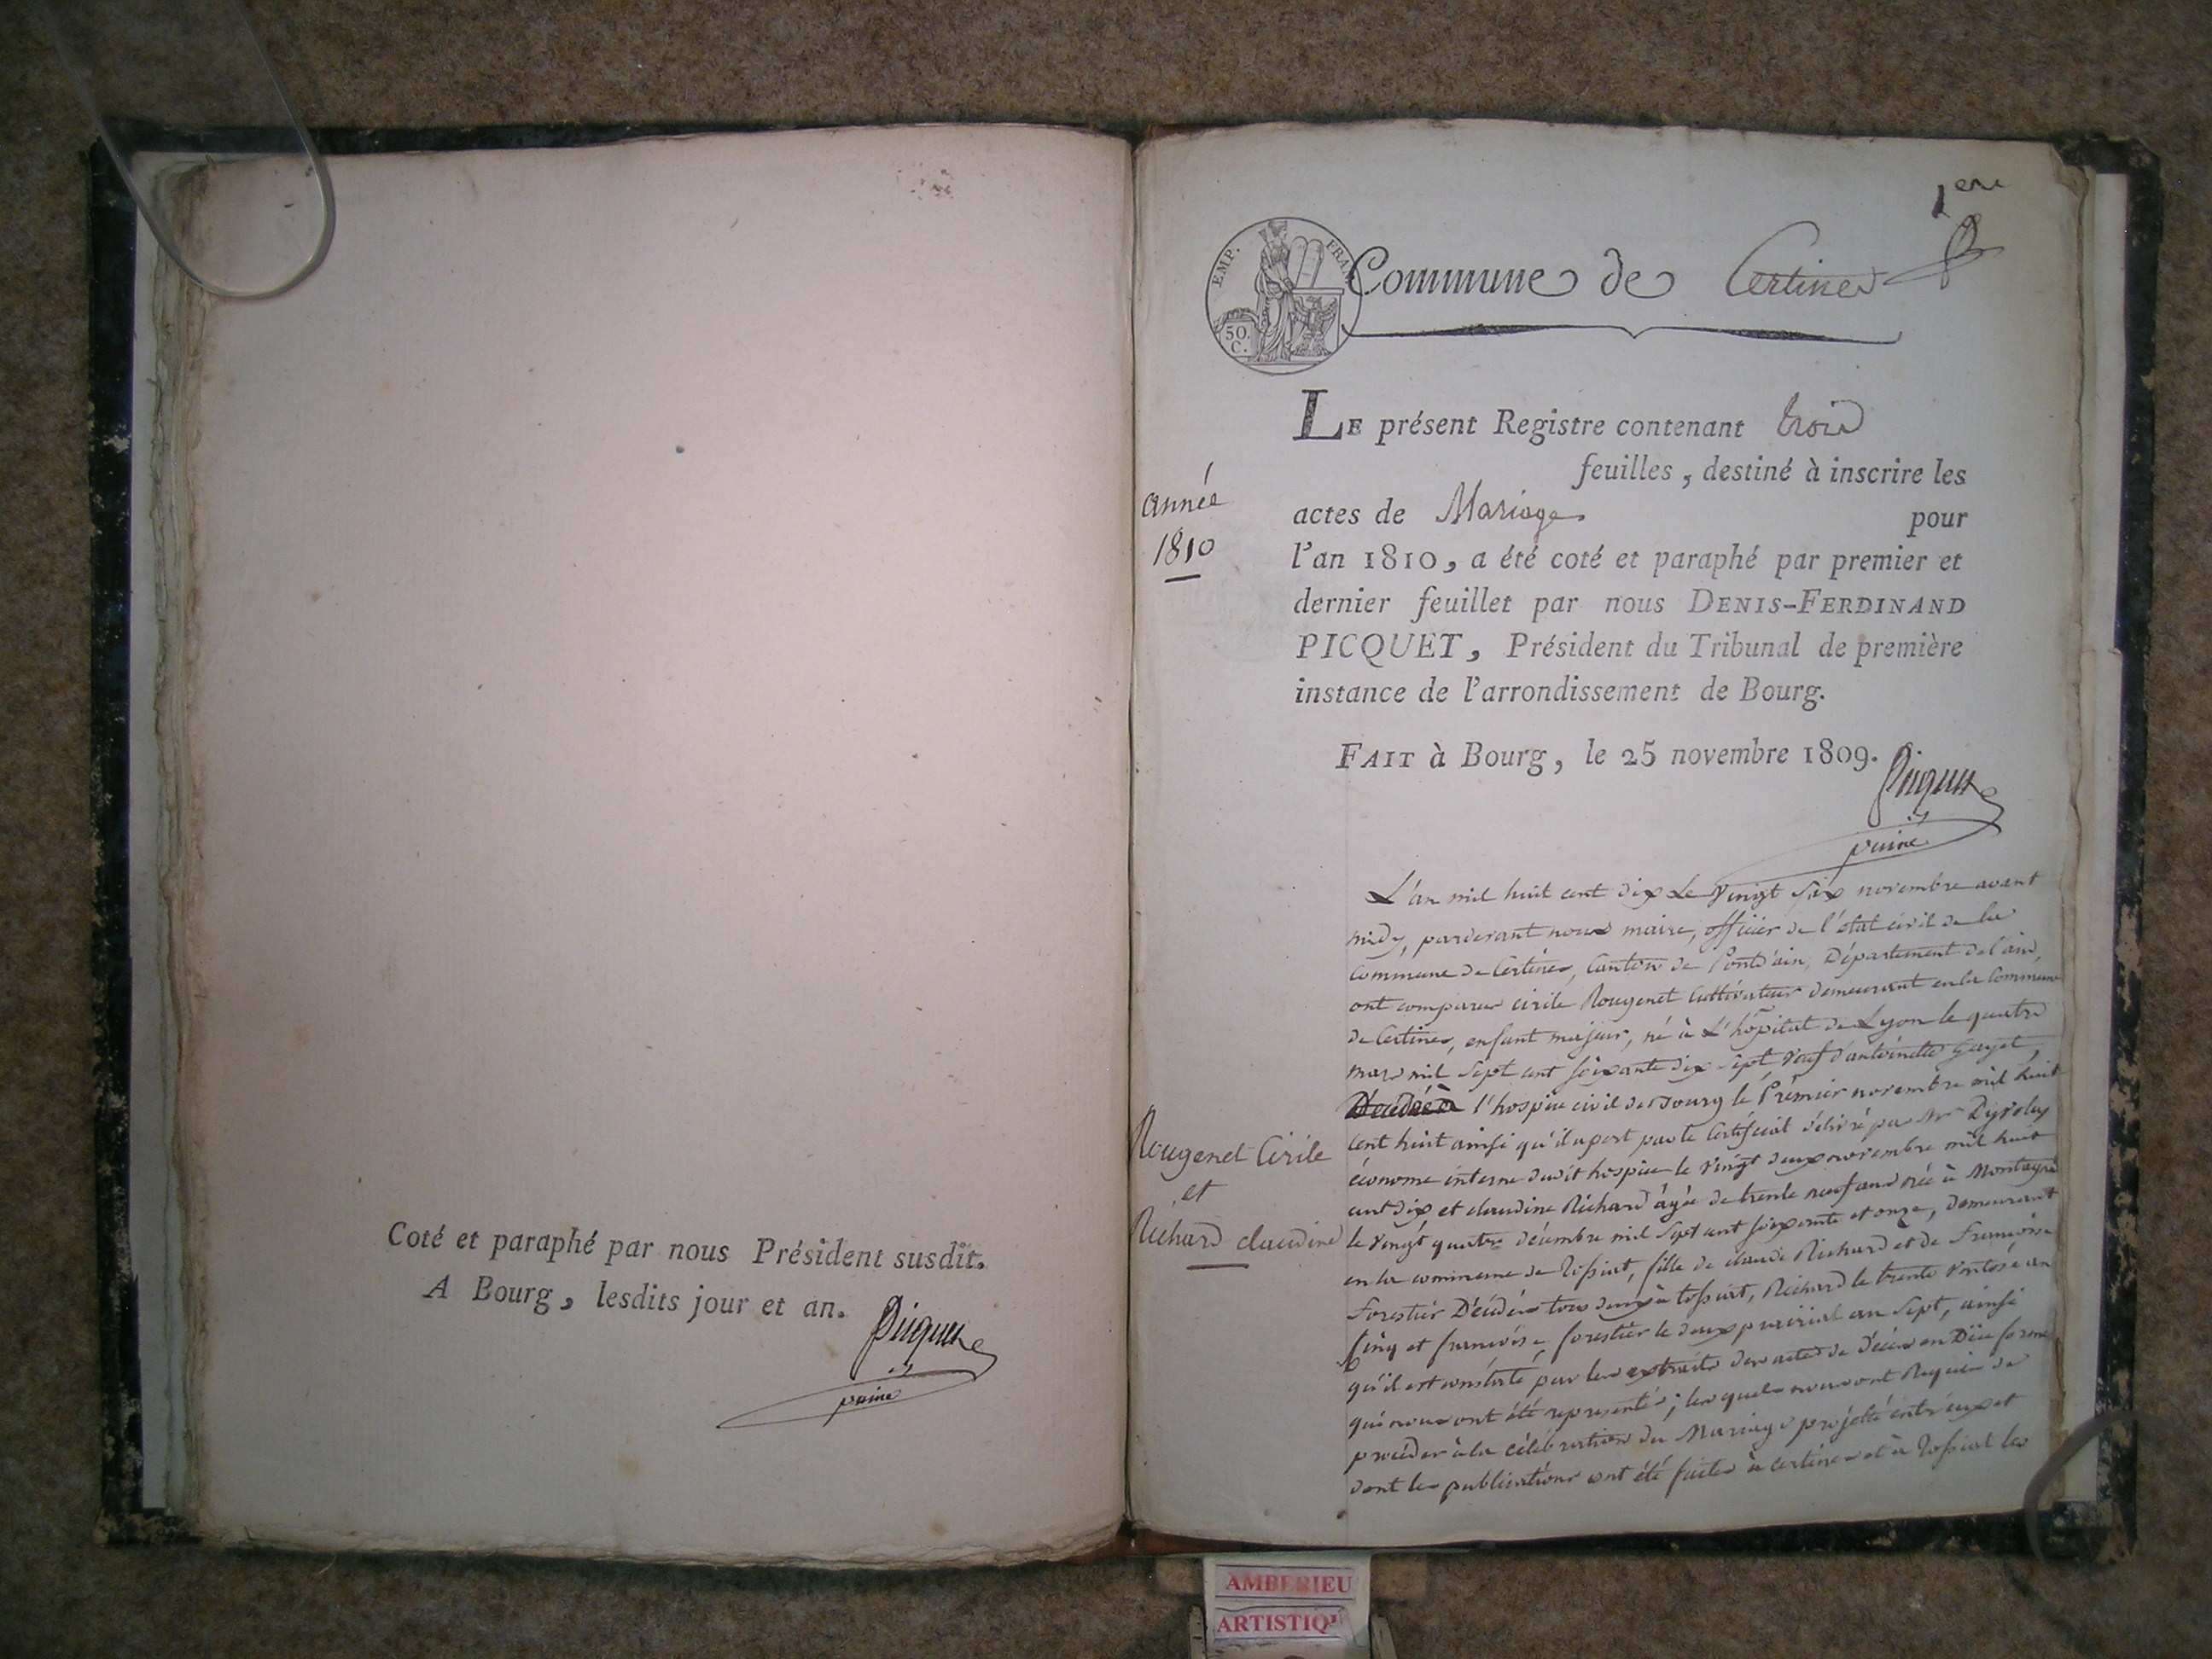 Coté et paraphé par nous Président susdit.
A Bourg, lesdits jour et an.
Picquet
1ere
EMP. FRAN.
50.
C.
Commune de Certines
LE présent Registre contenant trois
feuilles, destiné à inscrire les
actes de Mariage pour
l'an 1810, a été coté et paraphé par premier et
dernier feuillet par nous DENIS-FERDINAND
PICQUET, Président du Tribunal de première
instance de l'arrondissement de Bourg.
FAIT à Bourg, le 25 novembre 1809.
Picquet
année
1810
Rougenet Cirile
et
Richard claudine
L'an mil huit cent dix Le vingt six novembre avant
midy, pardevant nous maire, officier de l'état civil de la
commune de Certines, Canton de Pontd'ain, Département de l'ain,
ont comparus cirile Rougenet Cultivateur demeurant en la Commune
de Certines, enfant majeur, né à L'hôpital de Lyon le quatre
mars mil sept cent soixante dix-sept, veuf d'antoinette gayet,
Décédée à l'hospice civil de Bourg le Premier novembre mil huit
cent huit ainsi qu'il apert par le Certificat délivré par Mr
économe interne dudit hospice le vingt deux novembre mil huit
cent dix et claudine Richard âgée de trente neuf ans née à Montagna
le vingt quatre décembre mil sept cent soixante et onze, demeurant
en la commune de Tossiat, fille de claude Richard et de Francoise
Forestier Décédés tous deux à tossiat, Richard le trente ventose an
cinq et francoise forestier le deux prairial an sept, ainsi
qu'il est constaté par les extraits des actes de décès en Düe forme
qui nous ont été representés; lesquels nous ont Requis de
procéder à la célébration du Mariage projeté entr'eux et
dont les publications ont été faites à certines et à Tossiat les
AMBERIEU
ARTISTIQ